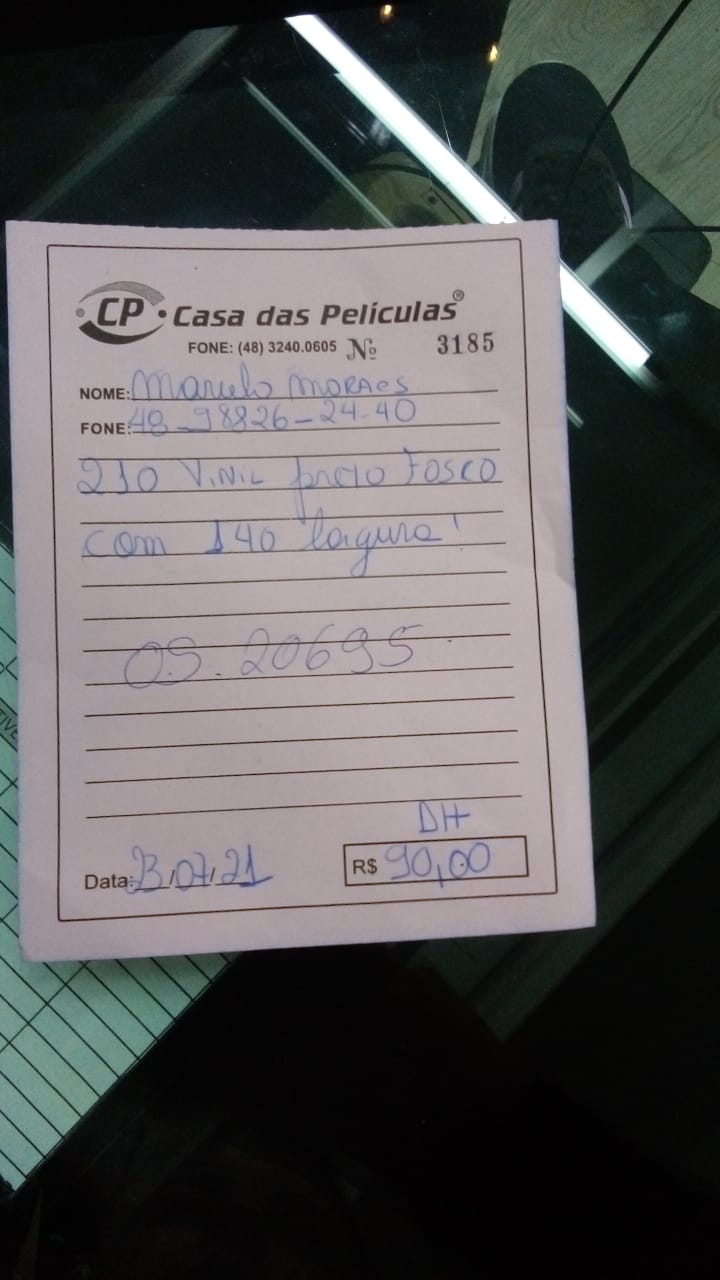 CP. Casa das Películas®
FONE: (48) 3240.0605 Nº 3185
NOME: Marcelo MORAES
FONE: 48-98826-24-40
210 ViNiL preto Fosco
com 140 lagura!
OS. 20695.
DH
Data: 23/07/21 R$ 90,00